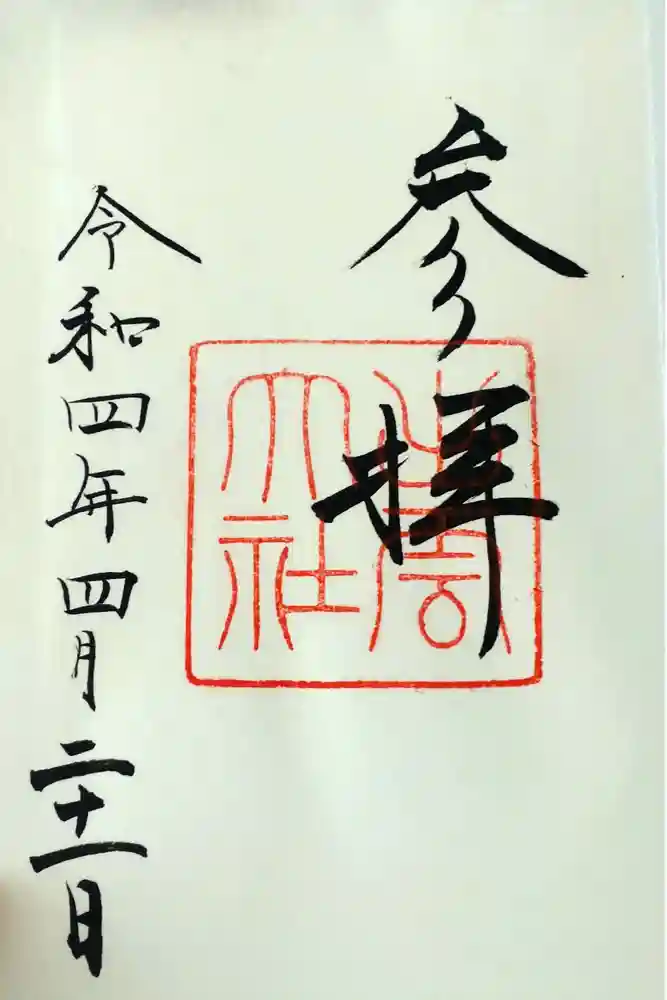 参拝
大社
令和四年四月二十一日